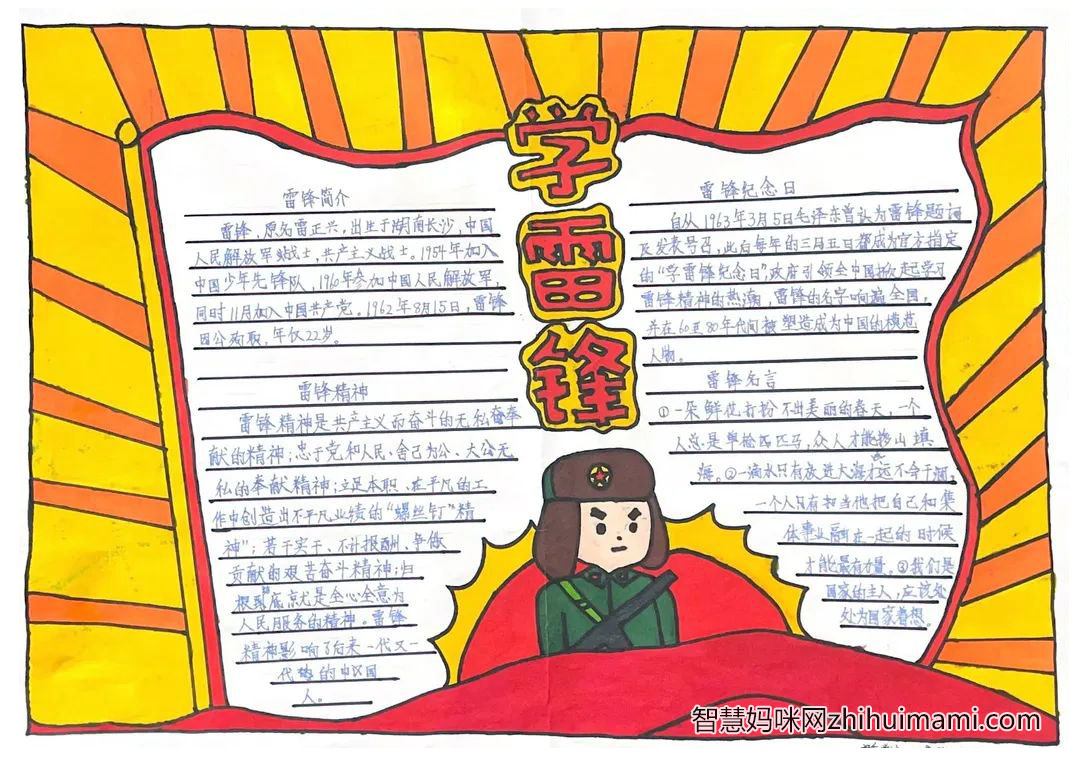 学雷锋
雷锋简介
雷锋，原名雷正兴，出生于湖南长沙，中国
人民解放军战士，共产主义战士。1954年加入
中国少年先锋队，1960年参加中国人民解放军，
同时11月加入中国共产党。1962年8月15日，雷锋
因公殉职，年仅22岁。
雷锋精神
雷锋精神是共产主义而奋斗的无私奋奉
献的精神；忠于党和人民、舍己为公、大公无
私的奉献精神；立足本职、在平凡的工
作中创造出不平凡业绩的“螺丝钉”精
神”；若干实干、不计报酬、争做
贡献的艰苦奋斗精神；归
根到底就是全心全意为
人民服务的精神。雷锋
精神影响了后来一代又一
代的中国
人。
雷锋纪念日
自从1963年3月5日毛泽东首次为雷锋题词
及发表号召，此后每年的三月五日都成为官方指定
的“学雷锋纪念日”，政府引领全中国掀起学习
雷锋精神的热潮，雷锋的名字响遍全国，
并在60至80年代间被塑造成为中国的模范
人物。
雷锋名言
①一朵鲜花打扮不出美丽的春天，一个
人总是单枪匹马，众人才能移山填
海。②一滴水只有放进大海才远不会干涸，
一个人只有当他把自己和集
体事业融在一起的时候
才能最有力量。③我们是
国家的主人，应该处
处为国家着想。
智慧妈咪网zhihuimami.com